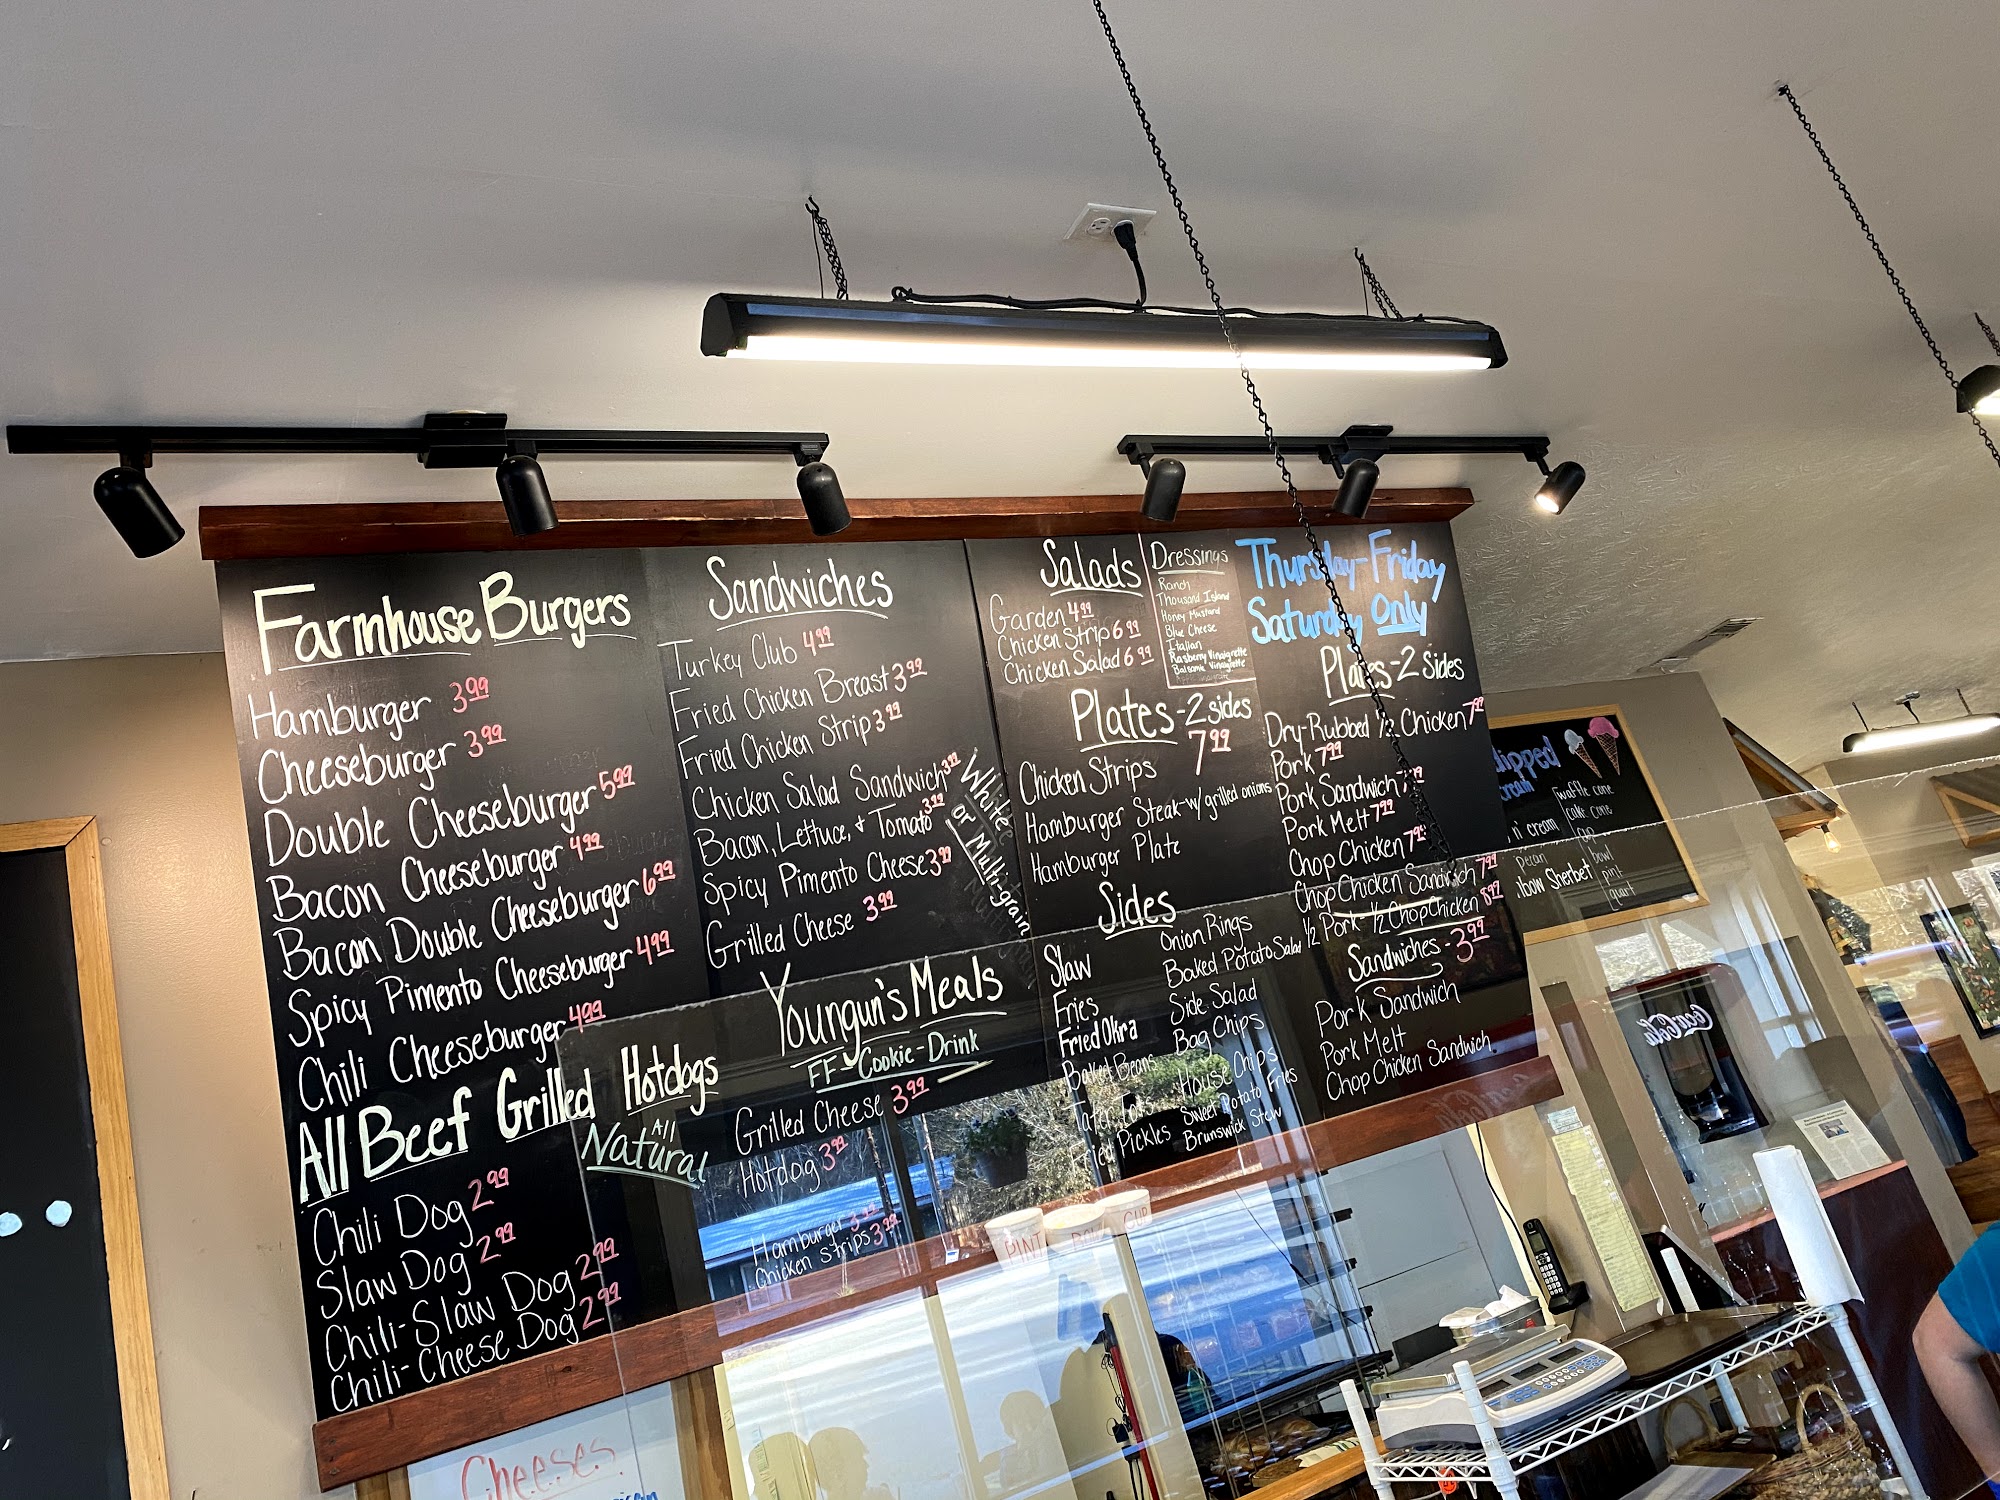 Farmhouse Burgers
Hamburger 3.99
Cheeseburger 3.99
Double Cheeseburger 5.99
Bacon Cheeseburger 4.99
Bacon Double Cheeseburger 6.99
Spicy Pimento Cheeseburger 4.99
Chili Cheeseburger 4.99
All Beef Grilled Hotdogs
All
Natural
Chili Dog 2.99
Slaw Dog 2.99
Chili-Slaw Dog 2.99
Chili-Cheese Dog 2.99
Sandwiches
Turkey Club 4.99
Fried Chicken Breast 3.99
Fried Chicken Strip 3.99
Chicken Salad Sandwich 3.99
Bacon, Lettuce, & Tomato 3.99
Spicy Pimento Cheese 3.99
Grilled Cheese 3.99
White
or Multi-grain
Youngun's Meals
FF-Cookie-Drink
Grilled Cheese 3.99
Hotdog 3.99
Hamburger 3.99
Chicken Strips 3.99
Salads
Garden 4.99
Chicken Strip 6.99
Chicken Salad 6.99
Dressings
Ranch
Thousand Island
Honey Mustard
Blue Cheese
Italian
Rasberry Vinaigrette
Balsamic Vinaigrette
Plates-2 sides
7.99
Chicken Strips
Hamburger Steak-w/grilled onions
Hamburger Plate
Sides
Slaw
Fries
Fried Okra
Baked Beans
Tater tots
Fried Pickles
Onion Rings
Baked Potato Salad
Side Salad
Bag Chips
House Chips
Sweet Potato Fries
Brunswick Stew
Thursday-Friday
Saturday Only
Plates-2 Sides
Dry-Rubbed 1/2 Chicken 7.99
Pork 7.99
Pork Sandwich 7.99
Pork Melt 7.99
Chop Chicken 7.99
Chop Chicken Sandwich 7.99
1/2 Pork-1/2 Chop Chicken 8.99
Sandwiches-3.99
Pork Sandwich
Pork Melt
Chop Chicken Sandwich
dipped
cream
n' cream
pecan
bow Sherbet
waffle cone
cake cone
cup
bowl
pint
quart
Coca-Cola
PINT
BOWL
CUP
Cheeses